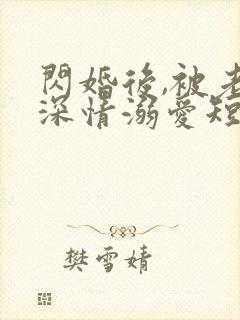 閃婚後,被老
深情溺愛短
樊雪婧